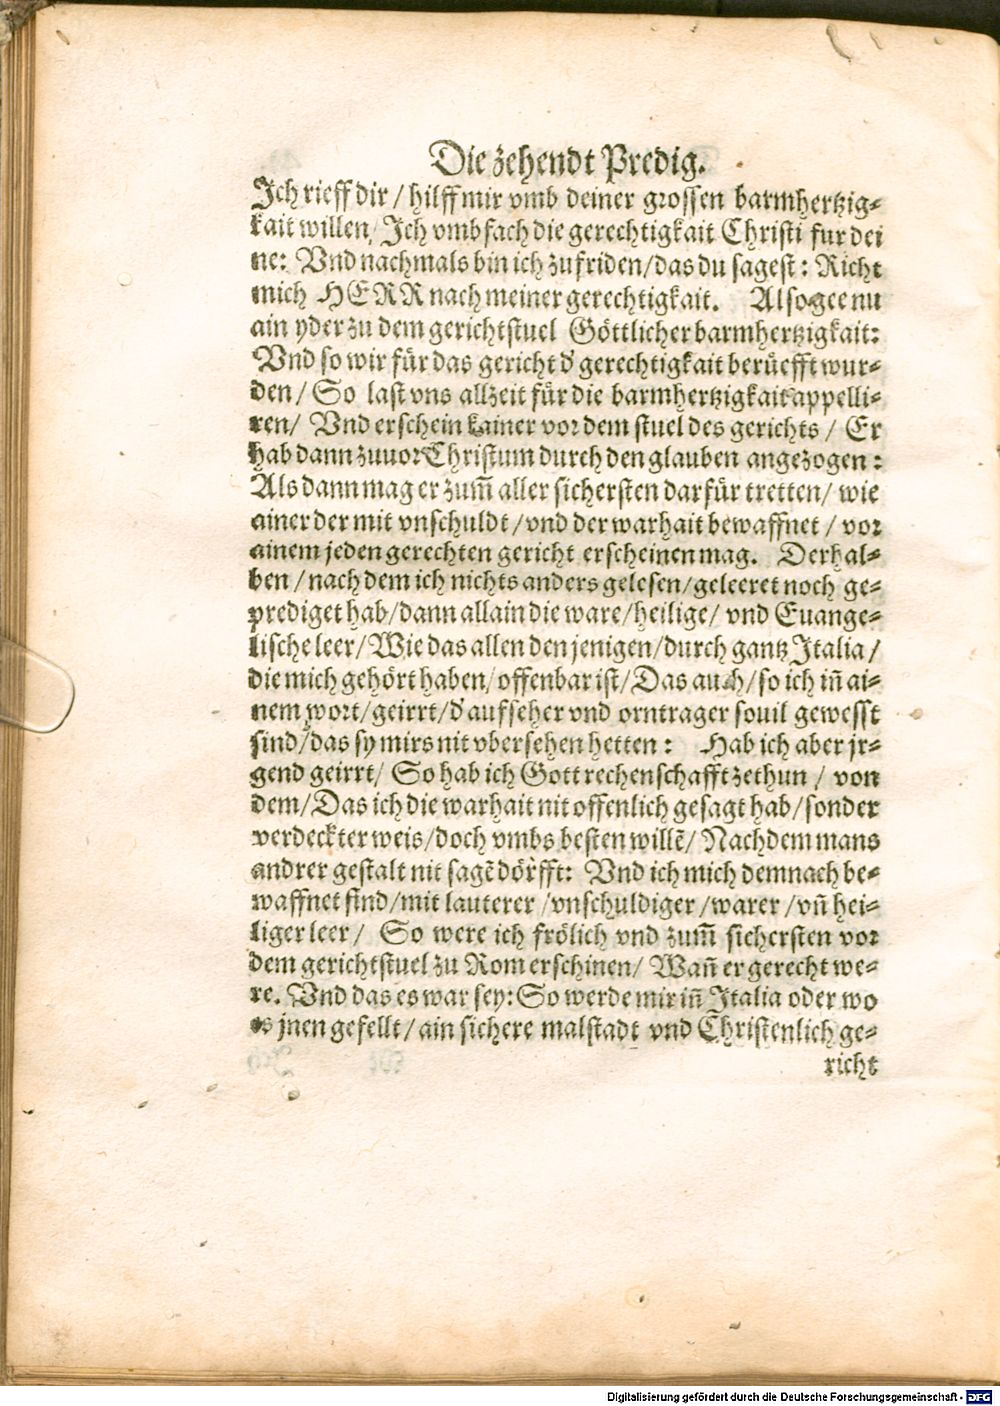 Die zehendt Predig.
Ich rieff dir / hilff mir vmb deiner grossen barmhertzig-
kait willen / Ich vmbfach die gerechtigkait Christi fur dei
ne: Vnd nachmals bin ich zufriden / das du sagest: Richt
mich HERR nach meiner gerechtigkait. Also gee nu
ain yder zu dem gerichtstuel Göttlicher barmhertzigkait:
Vnd so wir für das gericht d' gerechtigkait berüefft wur-
den / So last vns allzeit für die barmhertzigkait appelli-
ren / Vnd erschein kainer vor dem stuel des gerichts / Er
hab dann zuuor Christum durch den glauben angezogen:
Als dann mag er zum̄ aller sichersten darfür tretten / wie
ainer der mit vnschuldt / vnd der warhait bewaffnet / vor
ainem jeden gerechten gericht erscheinen mag. Derhal-
ben / nach dem ich nichts anders gelesen / geleeret noch ge-
prediget hab / dann allain die ware / heilige / vnd Euange-
lische leer / Wie das allen den jenigen / durch gantz Italia /
die mich gehört haben / offenbar ist / Das auch / so ich in̄ ai-
nem wort / geirrt / d' aufseher vnd orntrager souil gewesst
sind / das sy mirs nit vbersehen hetten: Hab ich aber jr-
gend geirrt / So hab ich Gott rechenschafft zethun / von
dem / Das ich die warhait nit offenlich gesagt hab / sonder
verdeckter weis / doch vmbs besten willē / Nachdem mans
andrer gestalt nit sagē dörfft: Vnd ich mich demnach be-
waffnet find / mit lauterer / vnschuldiger / warer / vn̄ hei-
liger leer / So were ich frölich vnd zum̄ sichersten vor
dem gerichtstuel zu Rom erschinen / Wan̄ er gerecht we-
re. Vnd das es war sey: So werde mir in̄ Italia oder wo
es jnen gefellt / ain sichere malstadt vnd Christenlich ge-
richt
Digitalisierung gefördert durch die Deutsche Forschungsgemeinschaft - DFG